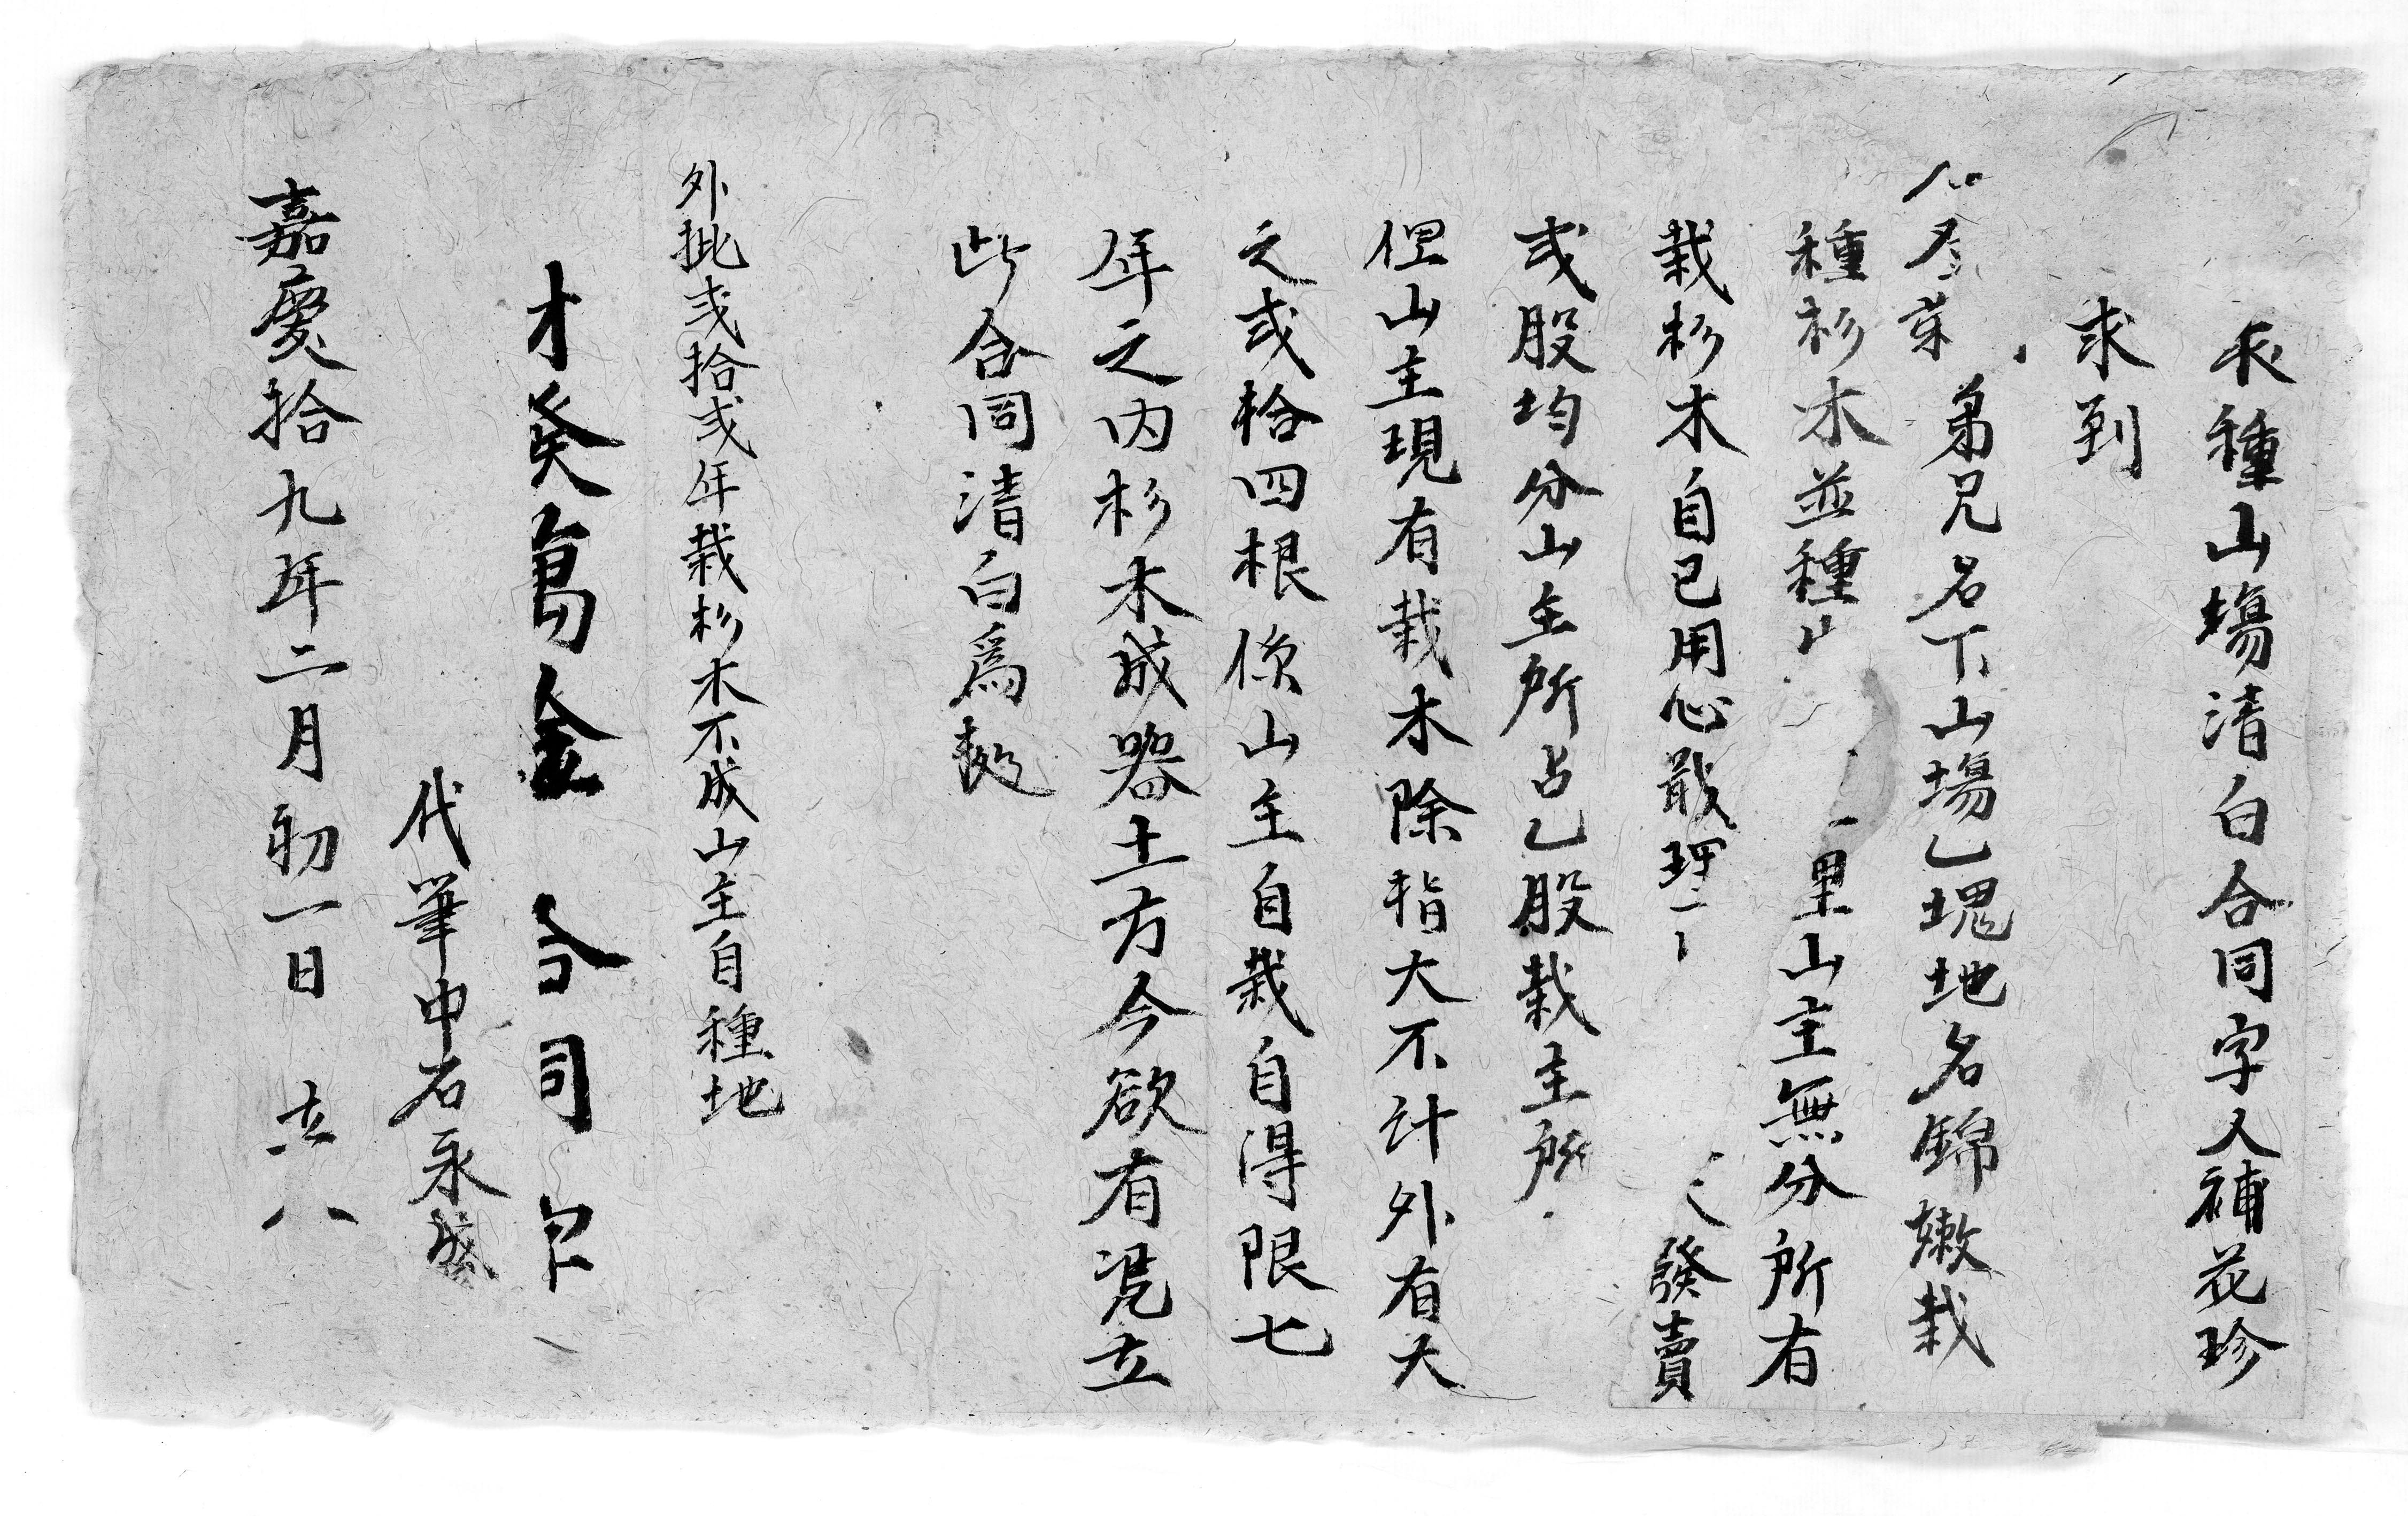 種山塲清白合同字人補花珍
求到
弟兄名下山塲乙塊地名錦嫩栽
種杉木並種里山主無分所有
栽杉木自己用心戢理發賣
貳股均分山主所占乙股栽主所
但山主現有栽木除指大不計外有大
之貳拾四根係山主自栽自得限七
年之内杉木成器土方今欲有凴立
此合同清白爲㨿
外批貳拾貳年栽杉木不成山主自種地
癸萬金合同
代筆中石永盛
嘉慶拾九年二月初一日 立